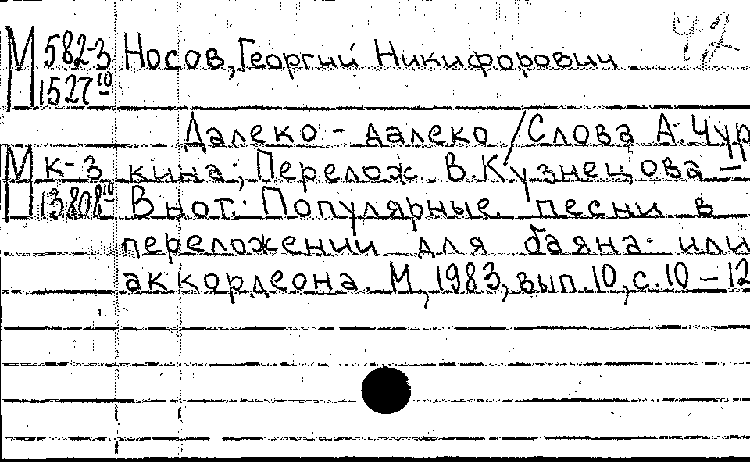 42
М 582-3 Носов, Георгий Никифорович
1527 10
Далеко - далеко / Слова А. Чур
М к-3 кина; Перелож. В. Кузнецова —
13808 10 В нот.: Популярные песни в
переложении для баяна или
аккордеона. М, 1983, вып. 10, с. 10 – 12